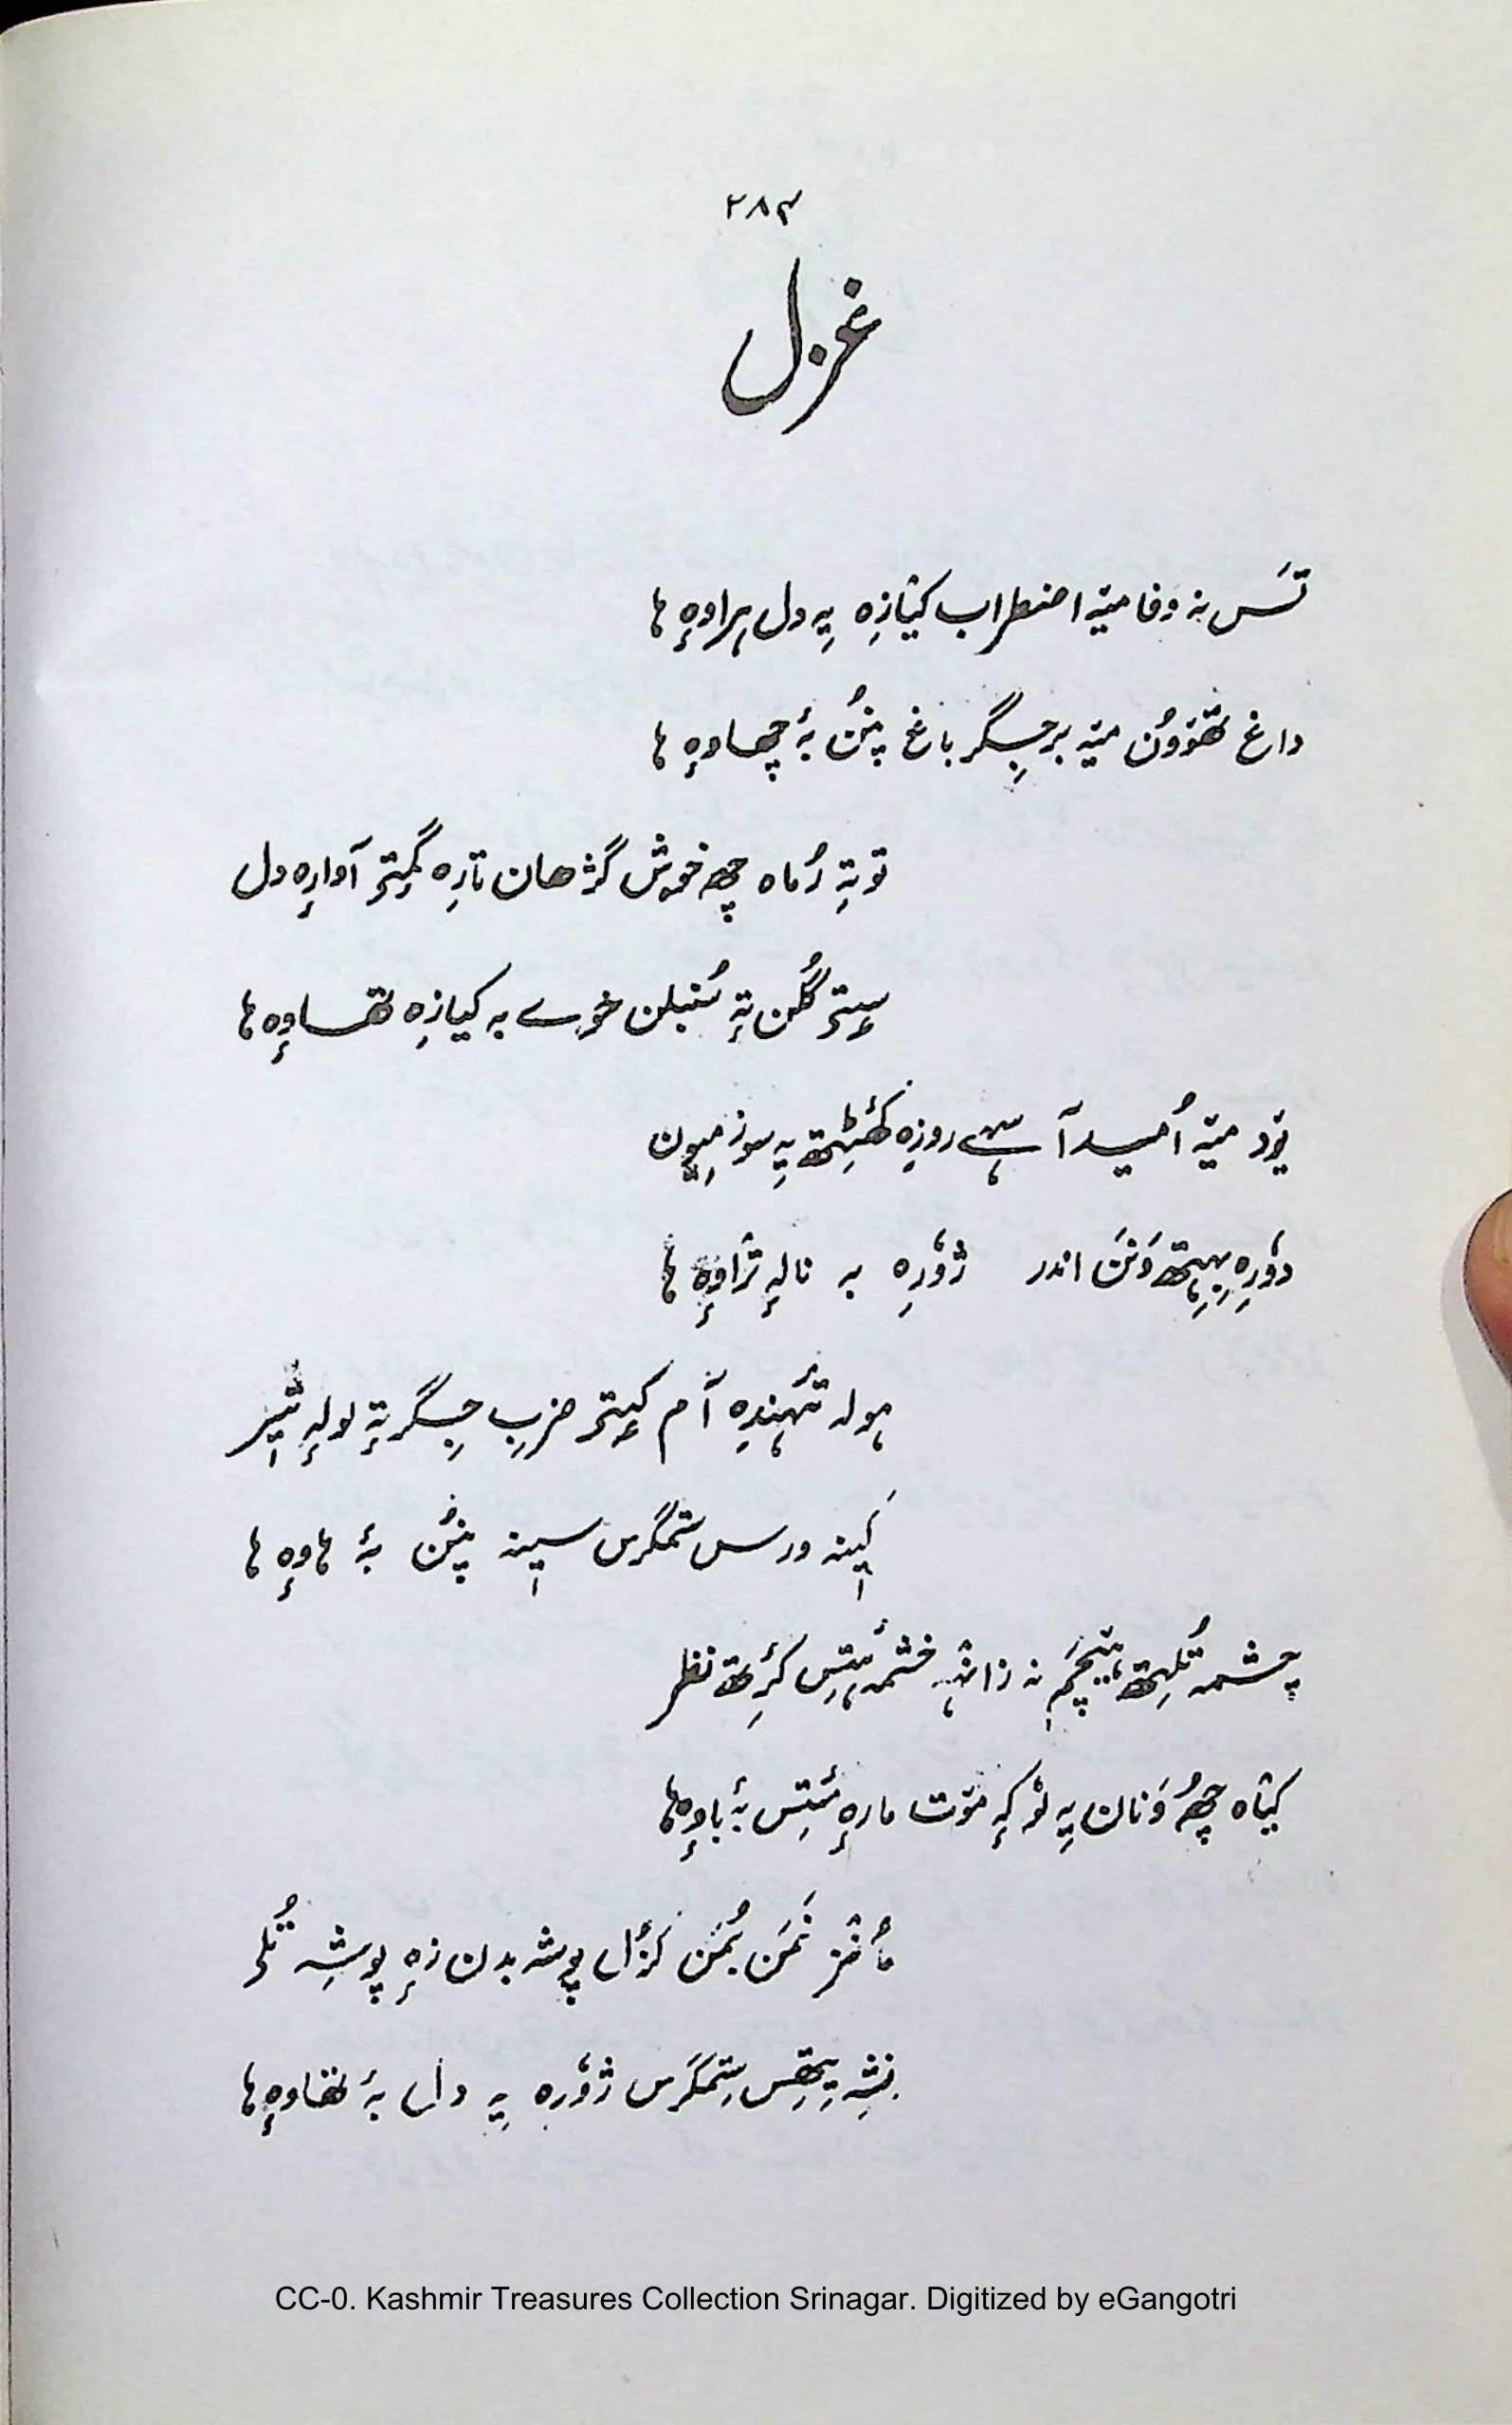 ۲۸۴
غزل
تَس نہ وفا میٚہ اضطراب کیٛازِہ یِہ دل ہراوٕہ ہا
داغ تھوٚوُن میٚہ بر جِگر باغ پنُن بہٕ چھاوٕہ ہا
توٚتہِ رُماہ چھ خۄش گژھان تازِہ گٔمٕژ آوارٕہ دل
سۭتۍ گُلن تہٕ سُنبلن خوے بہ کیازِہ تھاوٕہ ہا
یوٚد میٚہ اُمید آسہِ ہے روزِہ کٔھٹِتھ یِہ سوز میون
دوٗرِ بِہِتھ وَنَن اندر ژوٗرِہ بہ نالہٕ ترٛاوٕہ ہا
ہولہ تٔہندِہ آم کۭتۍ ضربِ جِگر تہٕ لولہٕ تیٖر
کیٖنہ ورس ستمگرس سیٖنہ پنُن بہٕ ہاوٕہ ہا
چشمہ تُلِتھ ہیٚچَم نہ زانٛہہ خشمہٕ ۂتِس کٔرِتھ نظر
کیٛاہ چھُ وَنان یِہ لوٗکہٕ موٚت مارٕہ مٔتِس بہٕ باوٕہ ہا
مٲنٛز نَمَن بُمَن کژٛل پوشہ بدن زہٕ پوشِہ تُلۍ
نِشہِ یِتھِس سِتمگرس ژوٗرہ یِہ دل بہٕ تھاوٕہ ہا
CC-0. Kashmir Treasures Collection Srinagar. Digitized by eGangotri